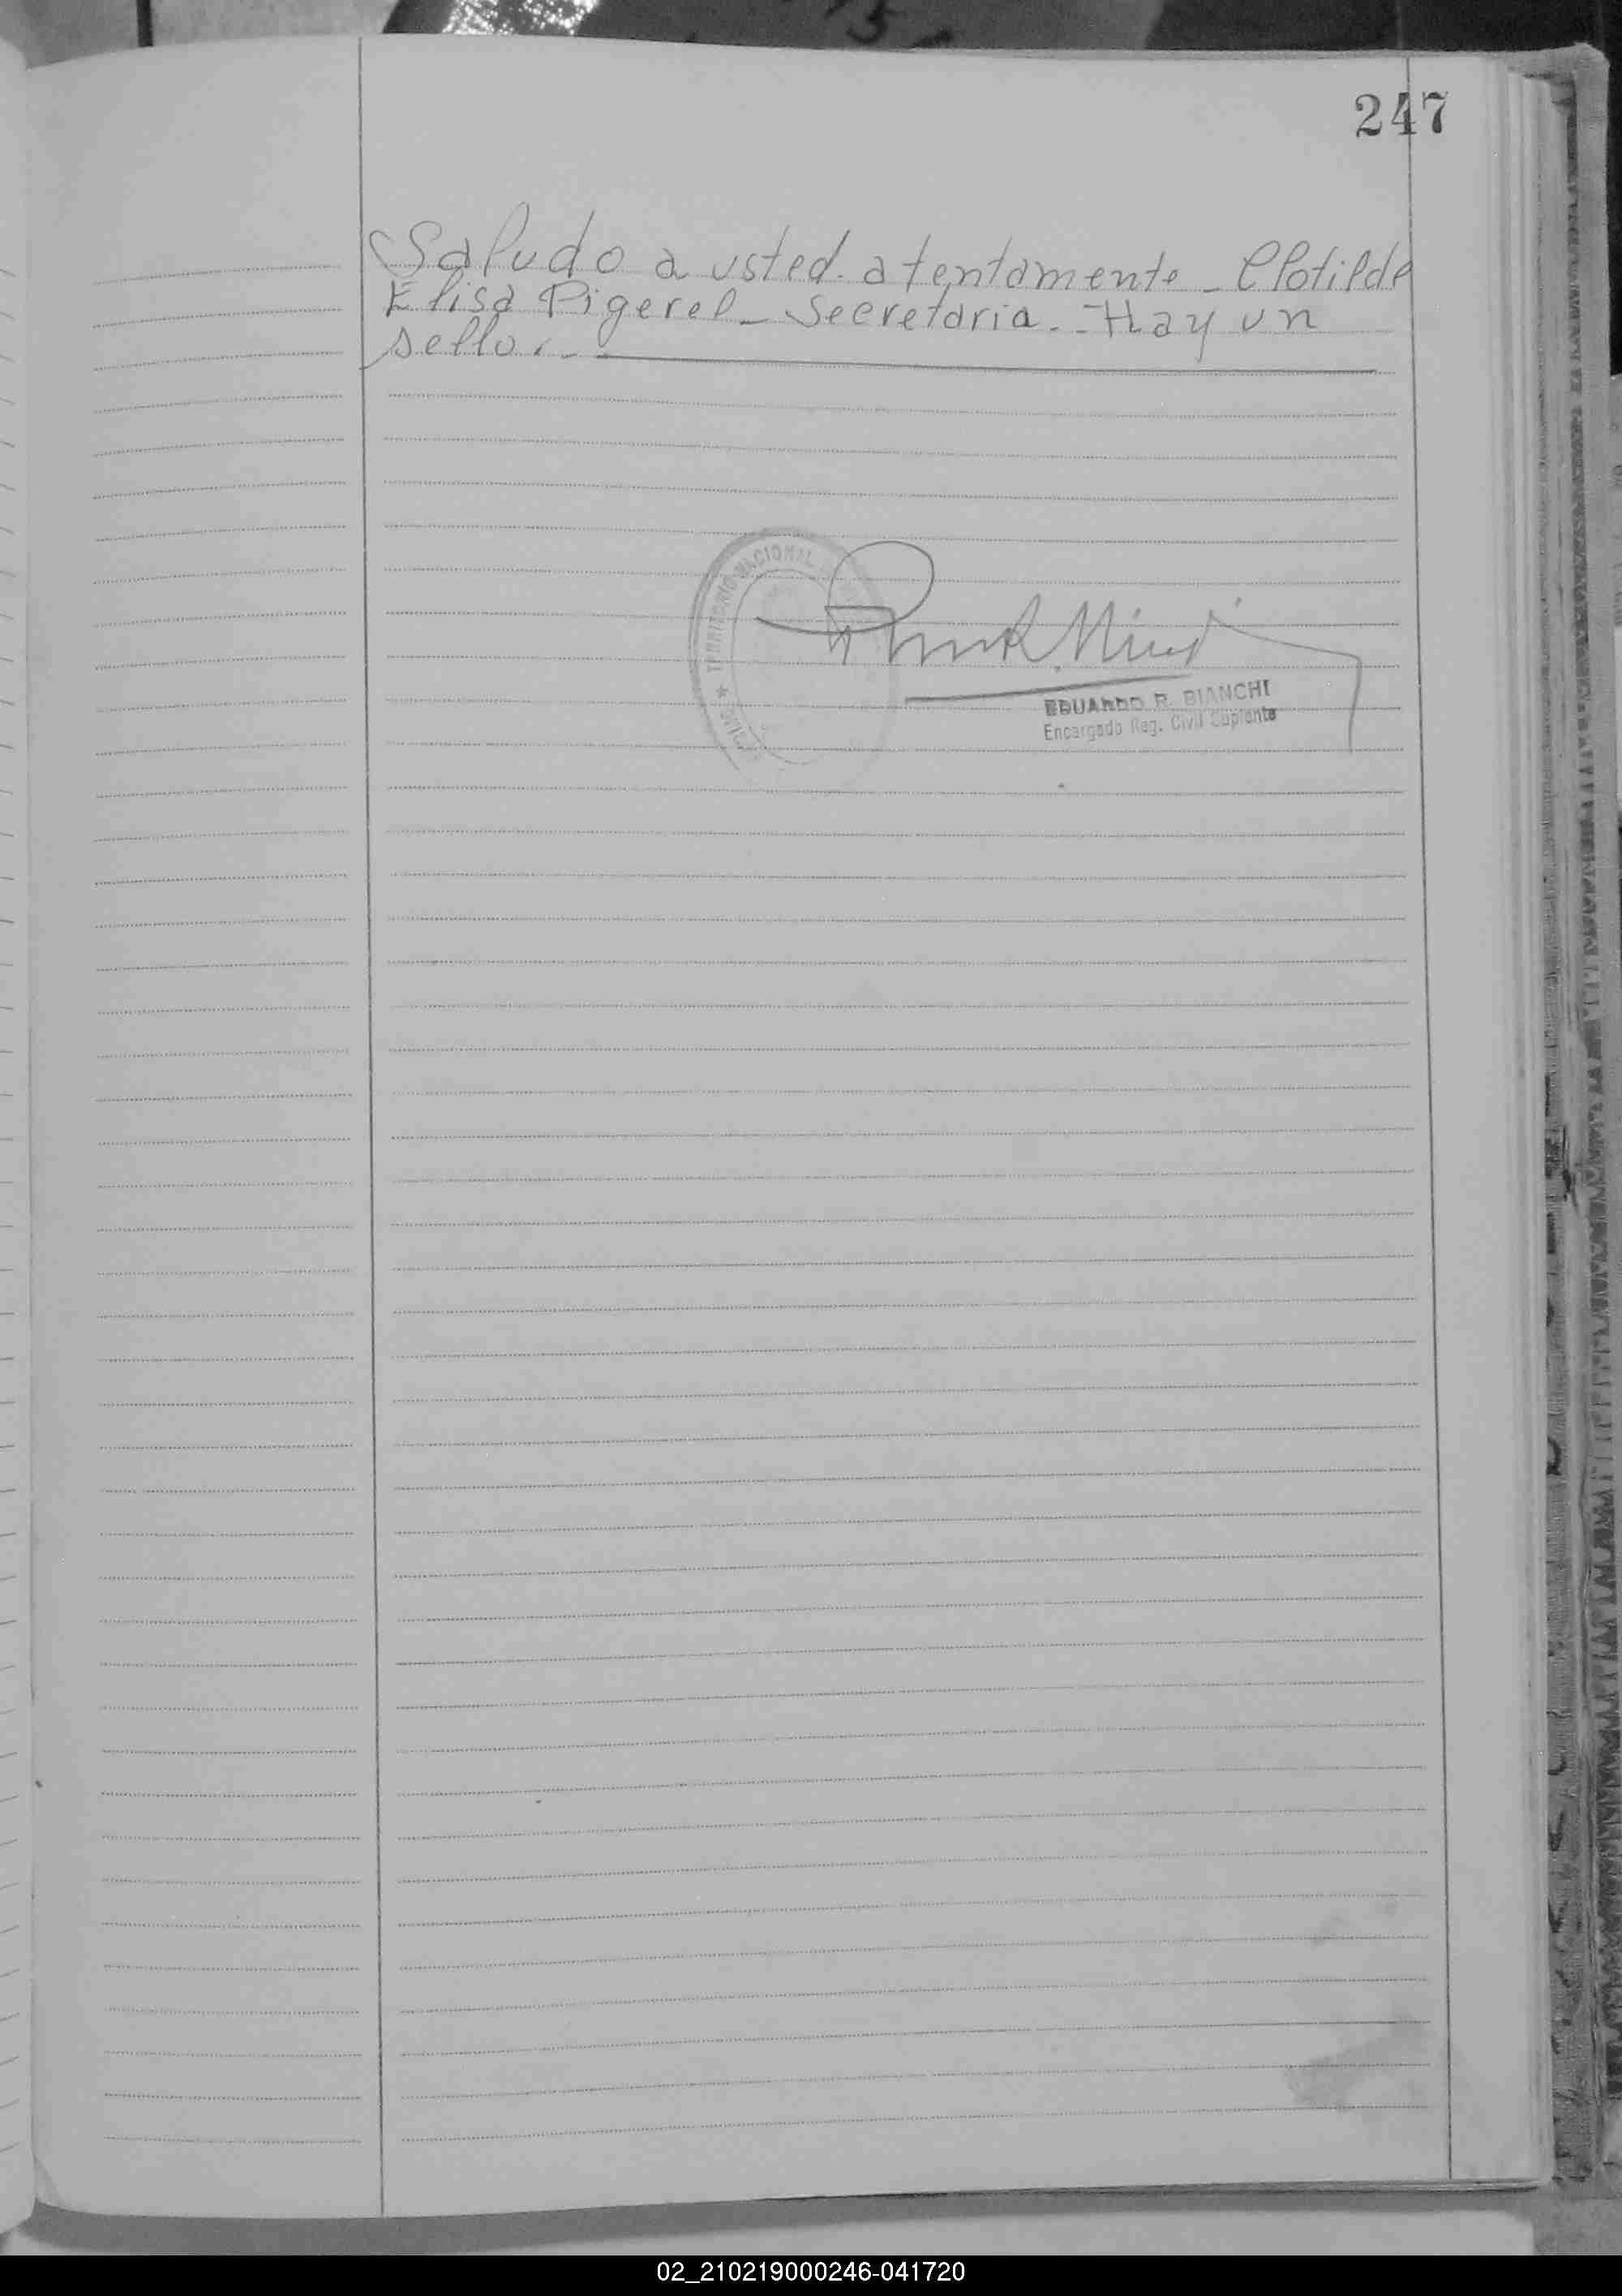 247
Saludo a usted atentamente - Clotilde
Elisa Pigerel - Secretaria. - Hay un
sello. -
TERRITORIO NACIONAL
EDUARDO R. BIANCHI
Encargado Reg. Civil Suplente
02_210219000246-041720